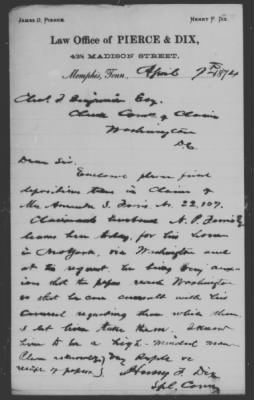 JAMES D. PIERCE.
HENRY F. DIX.
Law Office of PIERCE & DIX,
MADISON STREET,
Memphis, Tenn. April 9th 1874
Chas. F. Benjamin Esq.
Clerk Com. of Claims
Washington
D.C.
Dear Sir.
Enclosed please find
depositions taken in Claim of
Mrs Amanda S. No. 22,107.
Claimants husband N. P.
leaves here today, for his home
in New York, via Washington and
at his request, he being very anx-
ious that the papers reach Washington
so that he can consult with his
counsel regarding them while there,
I let him take them. I know
him to be a high-minded man
Please acknowledge
receipt of papers
Henry F Dix
Spl. Com.